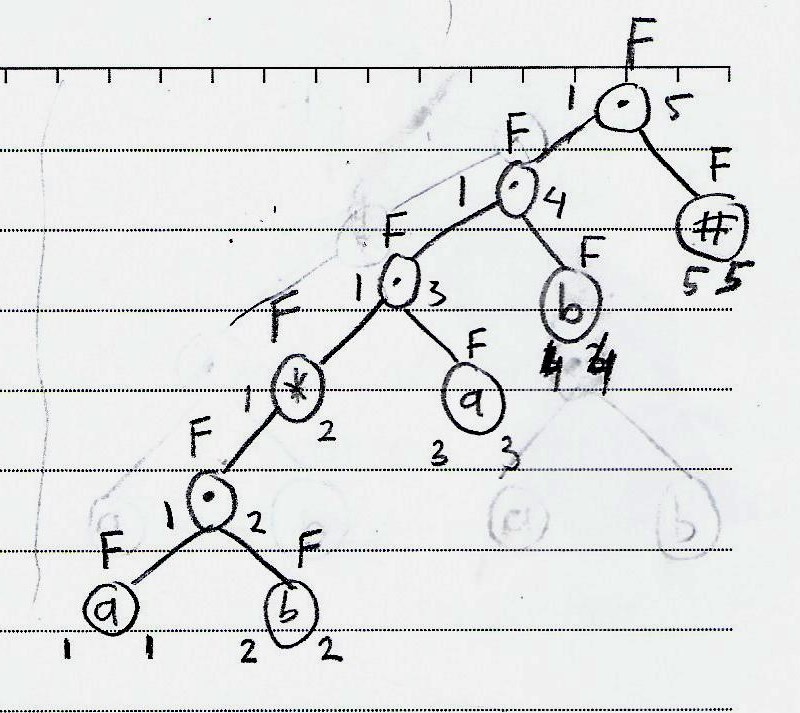 F
1 · 5
F
1 · 4
F
#
5 5
F
1 · 3
F
b
4 4
F
1 * 2
F
a
3 3
F
1 · 2
F
a
1 1
F
b
2 2